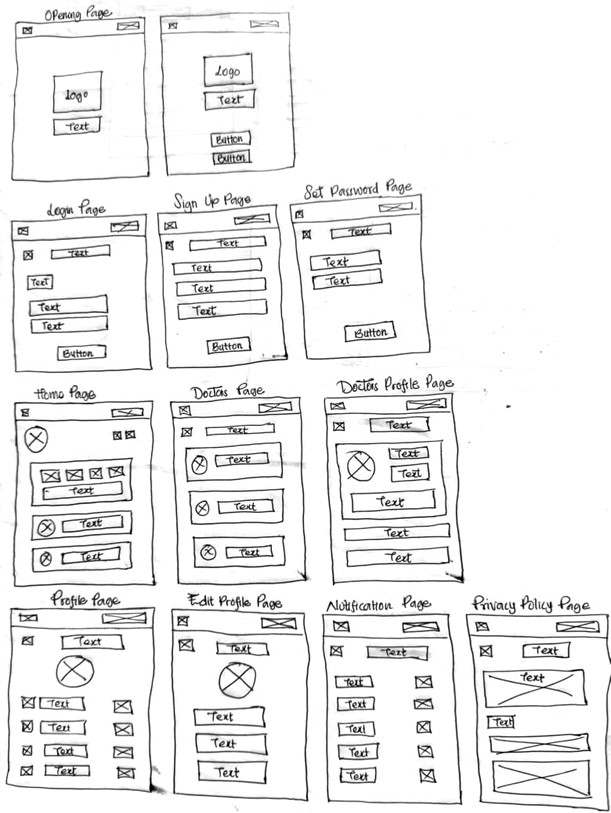 Opening Page
Logo
Text
Logo
Text
Button
Button
Login Page
Text
Text
Text
Text
Button
Sign Up Page
Text
Text
Text
Text
Button
Set Password Page
Text
Text
Text
Button
Home Page
Text
Text
Text
Doctors Page
Text
Text
Text
Text
Doctors Profile Page
Text
Text
Text
Text
Text
Text
Profile Page
Text
Text
Text
Text
Text
Edit Profile Page
Text
Text
Text
Text
Notification Page
Text
Text
Text
Text
Text
Text
Privacy Policy Page
Text
Text
Text